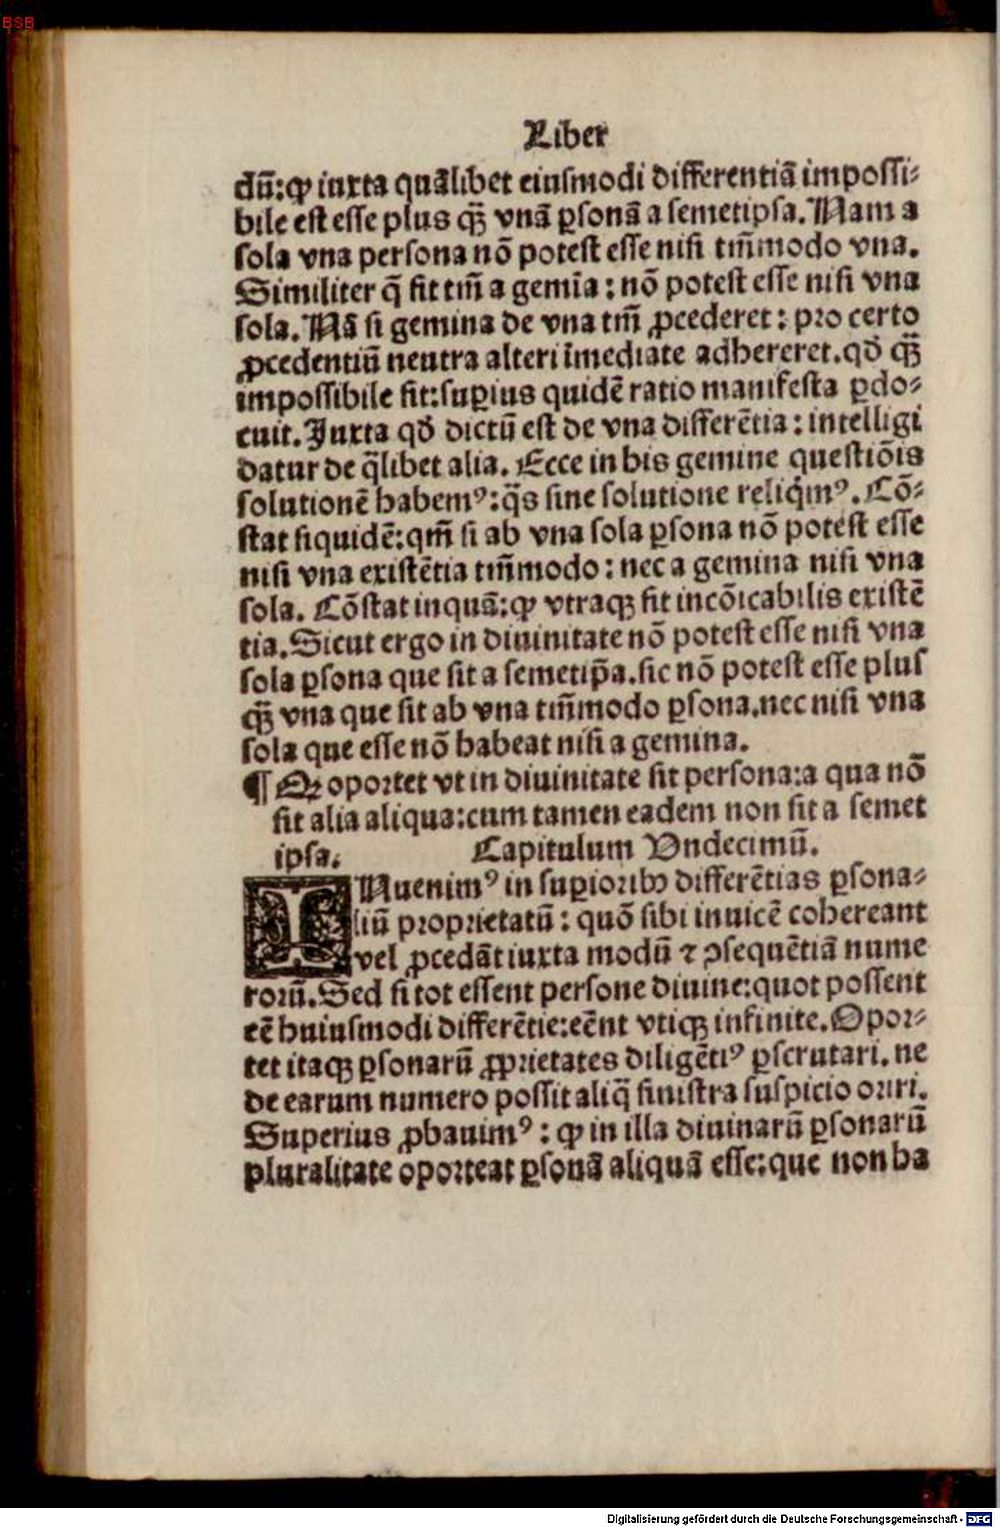 BSB
Liber
dū:ꝙ iuxta quālibet eiusmodi differentiā impossi⸗
bile est esse plus qꝫ̄ vnā ꝑsonā a semetipsa. Nam a
sola vna persona nō potest esse nisi tm̄modo vna.
Similiter q̄ sit tm̄ a gemīa : nō potest esse nisi vna
sola. Nā si gemina de vna tm̄ ꝓcederet : pro certo
ꝓcedentiū neutra alteri īmediate adhereret. qđ qꝫ̄
impossibile sit: suꝑius quidē ratio manifesta ꝑdo⸗
cuit. Iuxta qđ dictū est de vna differētia : intelligi
datur de q̄libet alia. Ecce in his gemine questiōis
solutionē habemꝰ: q̄s sine solutione reliq̇mꝰ. Cō⸗
stat siquidē: qm̄ si ab vna sola ꝑsona nō potest esse
nisi vna existētia tm̄modo : nec a gemina nisi vna
sola. Cōstat inquā: ꝙ vtraqꝫ sit incōicabilis existē
tia. Sicut ergo in diuinitate nō potest esse nisi vna
sola ꝑsona que sit a semetip̄a. sic nō potest esse plus
qꝫ̄ vna que sit ab vna tm̄modo ꝑsona. nec nisi vna
sola que esse nō habeat nisi a gemina.
¶ Qꝛ oportet vt in diuinitate sit persona: a qua nō
sit alia aliqua: cum tamen eadem non sit a semet
ipsa. Capitulum Vndecimū.
INuenimꝰ in suꝑioribꝰ differētias ꝑsona⸗
liū proprietatū : quō sibi inuicē cohereant
vel ꝓcedāt iuxta modū ⁊ ꝯsequētiā nume
rorū. Sed si tot essent persone diuine: quot possent
eē huiusmodi differētie: eēnt vtiqꝫ infinite. Opor⸗
tet itaqꝫ ꝑsonarū ꝓprietates diligētiꝰ ꝑscrutari. ne
de earum numero possit aliq̄ sinistra suspicio oriri.
Superius ꝓbauimꝰ : ꝙ in illa diuinarū ꝑsonarū
pluralitate oporteat ꝑsonā aliquā esse: que non ha
Digitalisierung gefördert durch die Deutsche Forschungsgemeinschaft - DFG